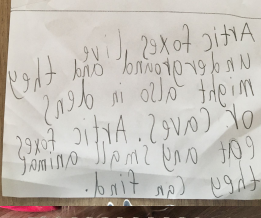 Artic foxes live
underground and they
might also in dens
or caves. Artic foxes
eat any small animal
they can find.